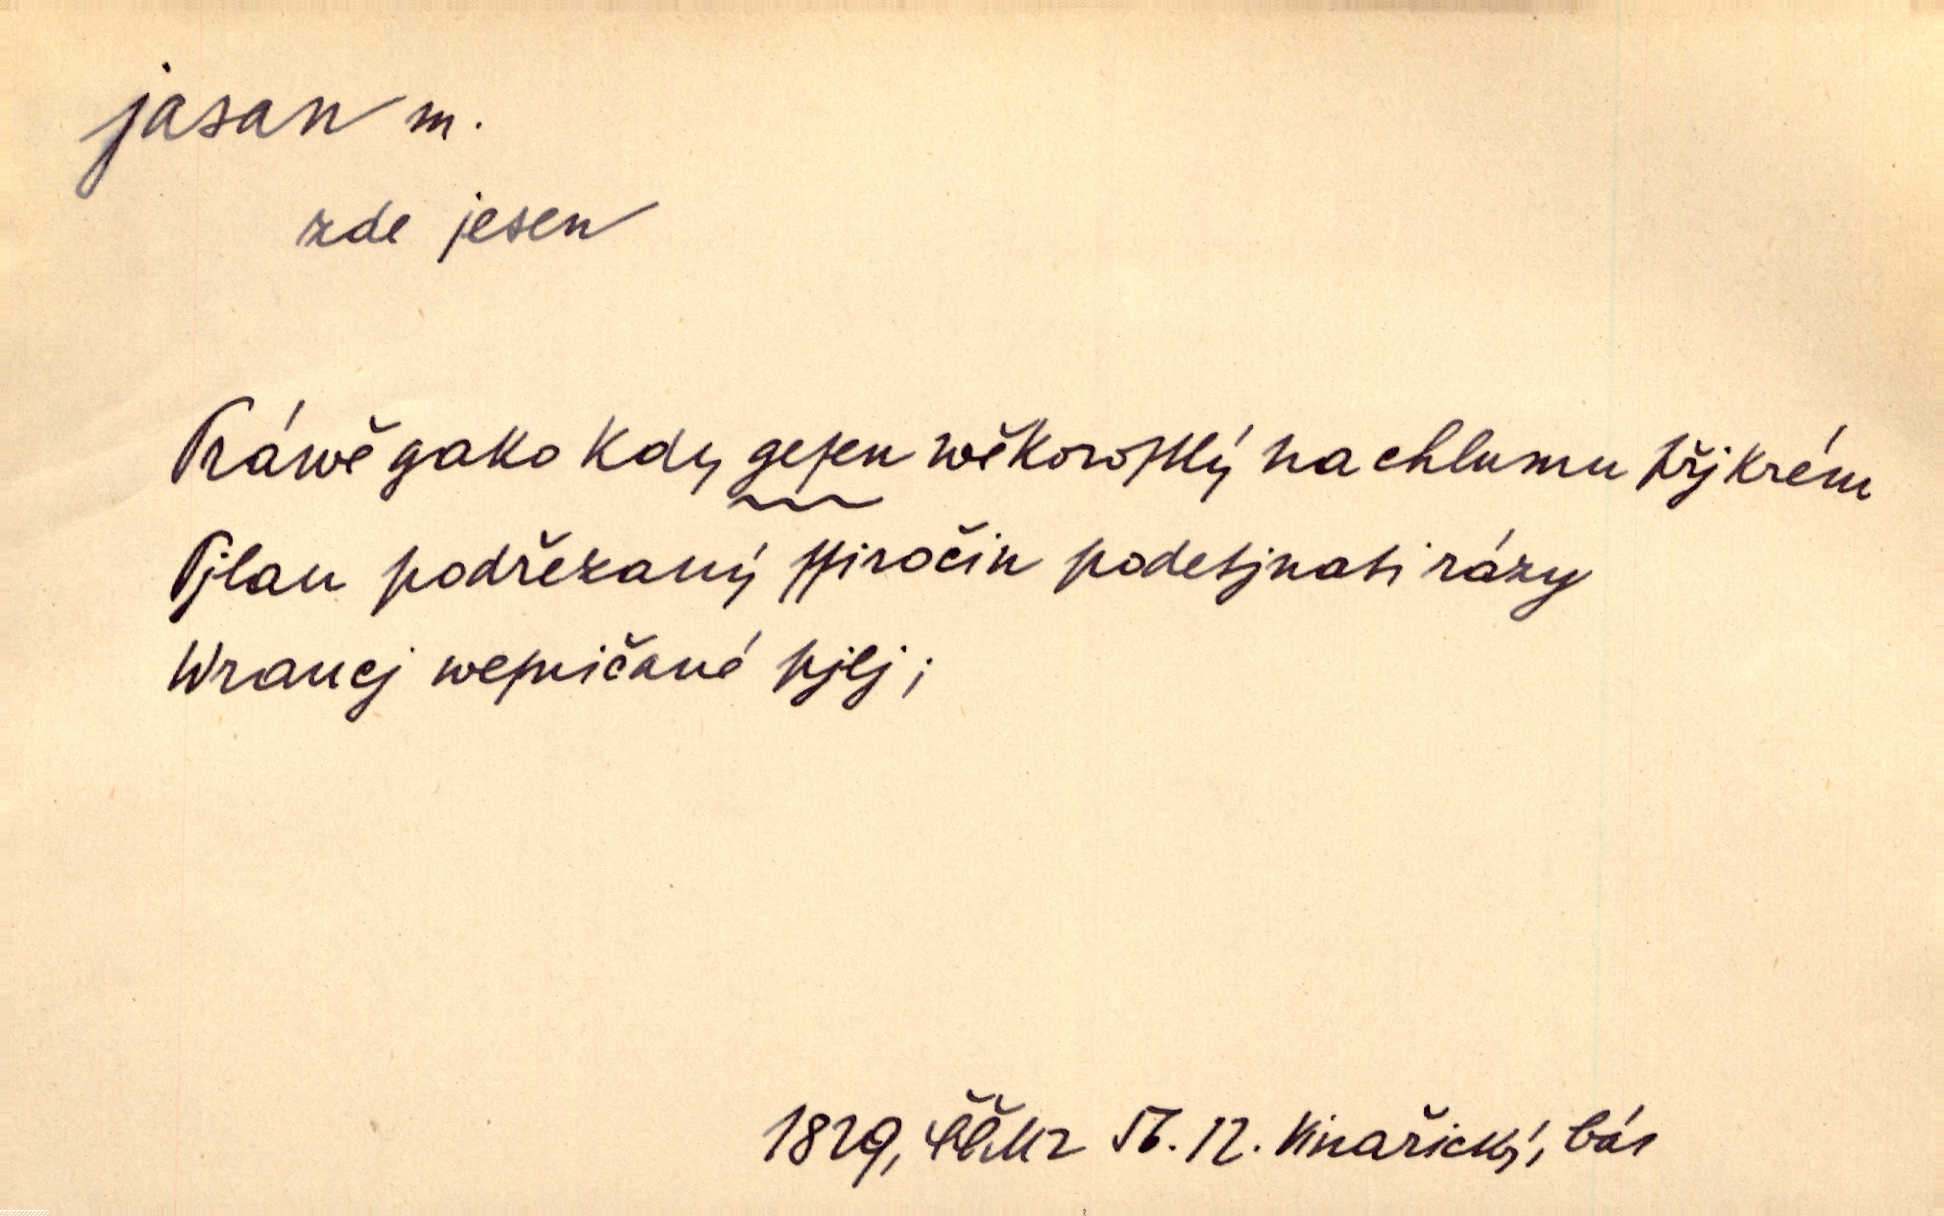 jasan m.
zde jesen
Práwě gako kdy geſen wěkoroſtlý na chlumu přjkrém
Pjlau podřezaný ſſiročin podetjnati rázy
Wraucj weſničané pjlj;
1829, ČČM2 Vinařický, bás